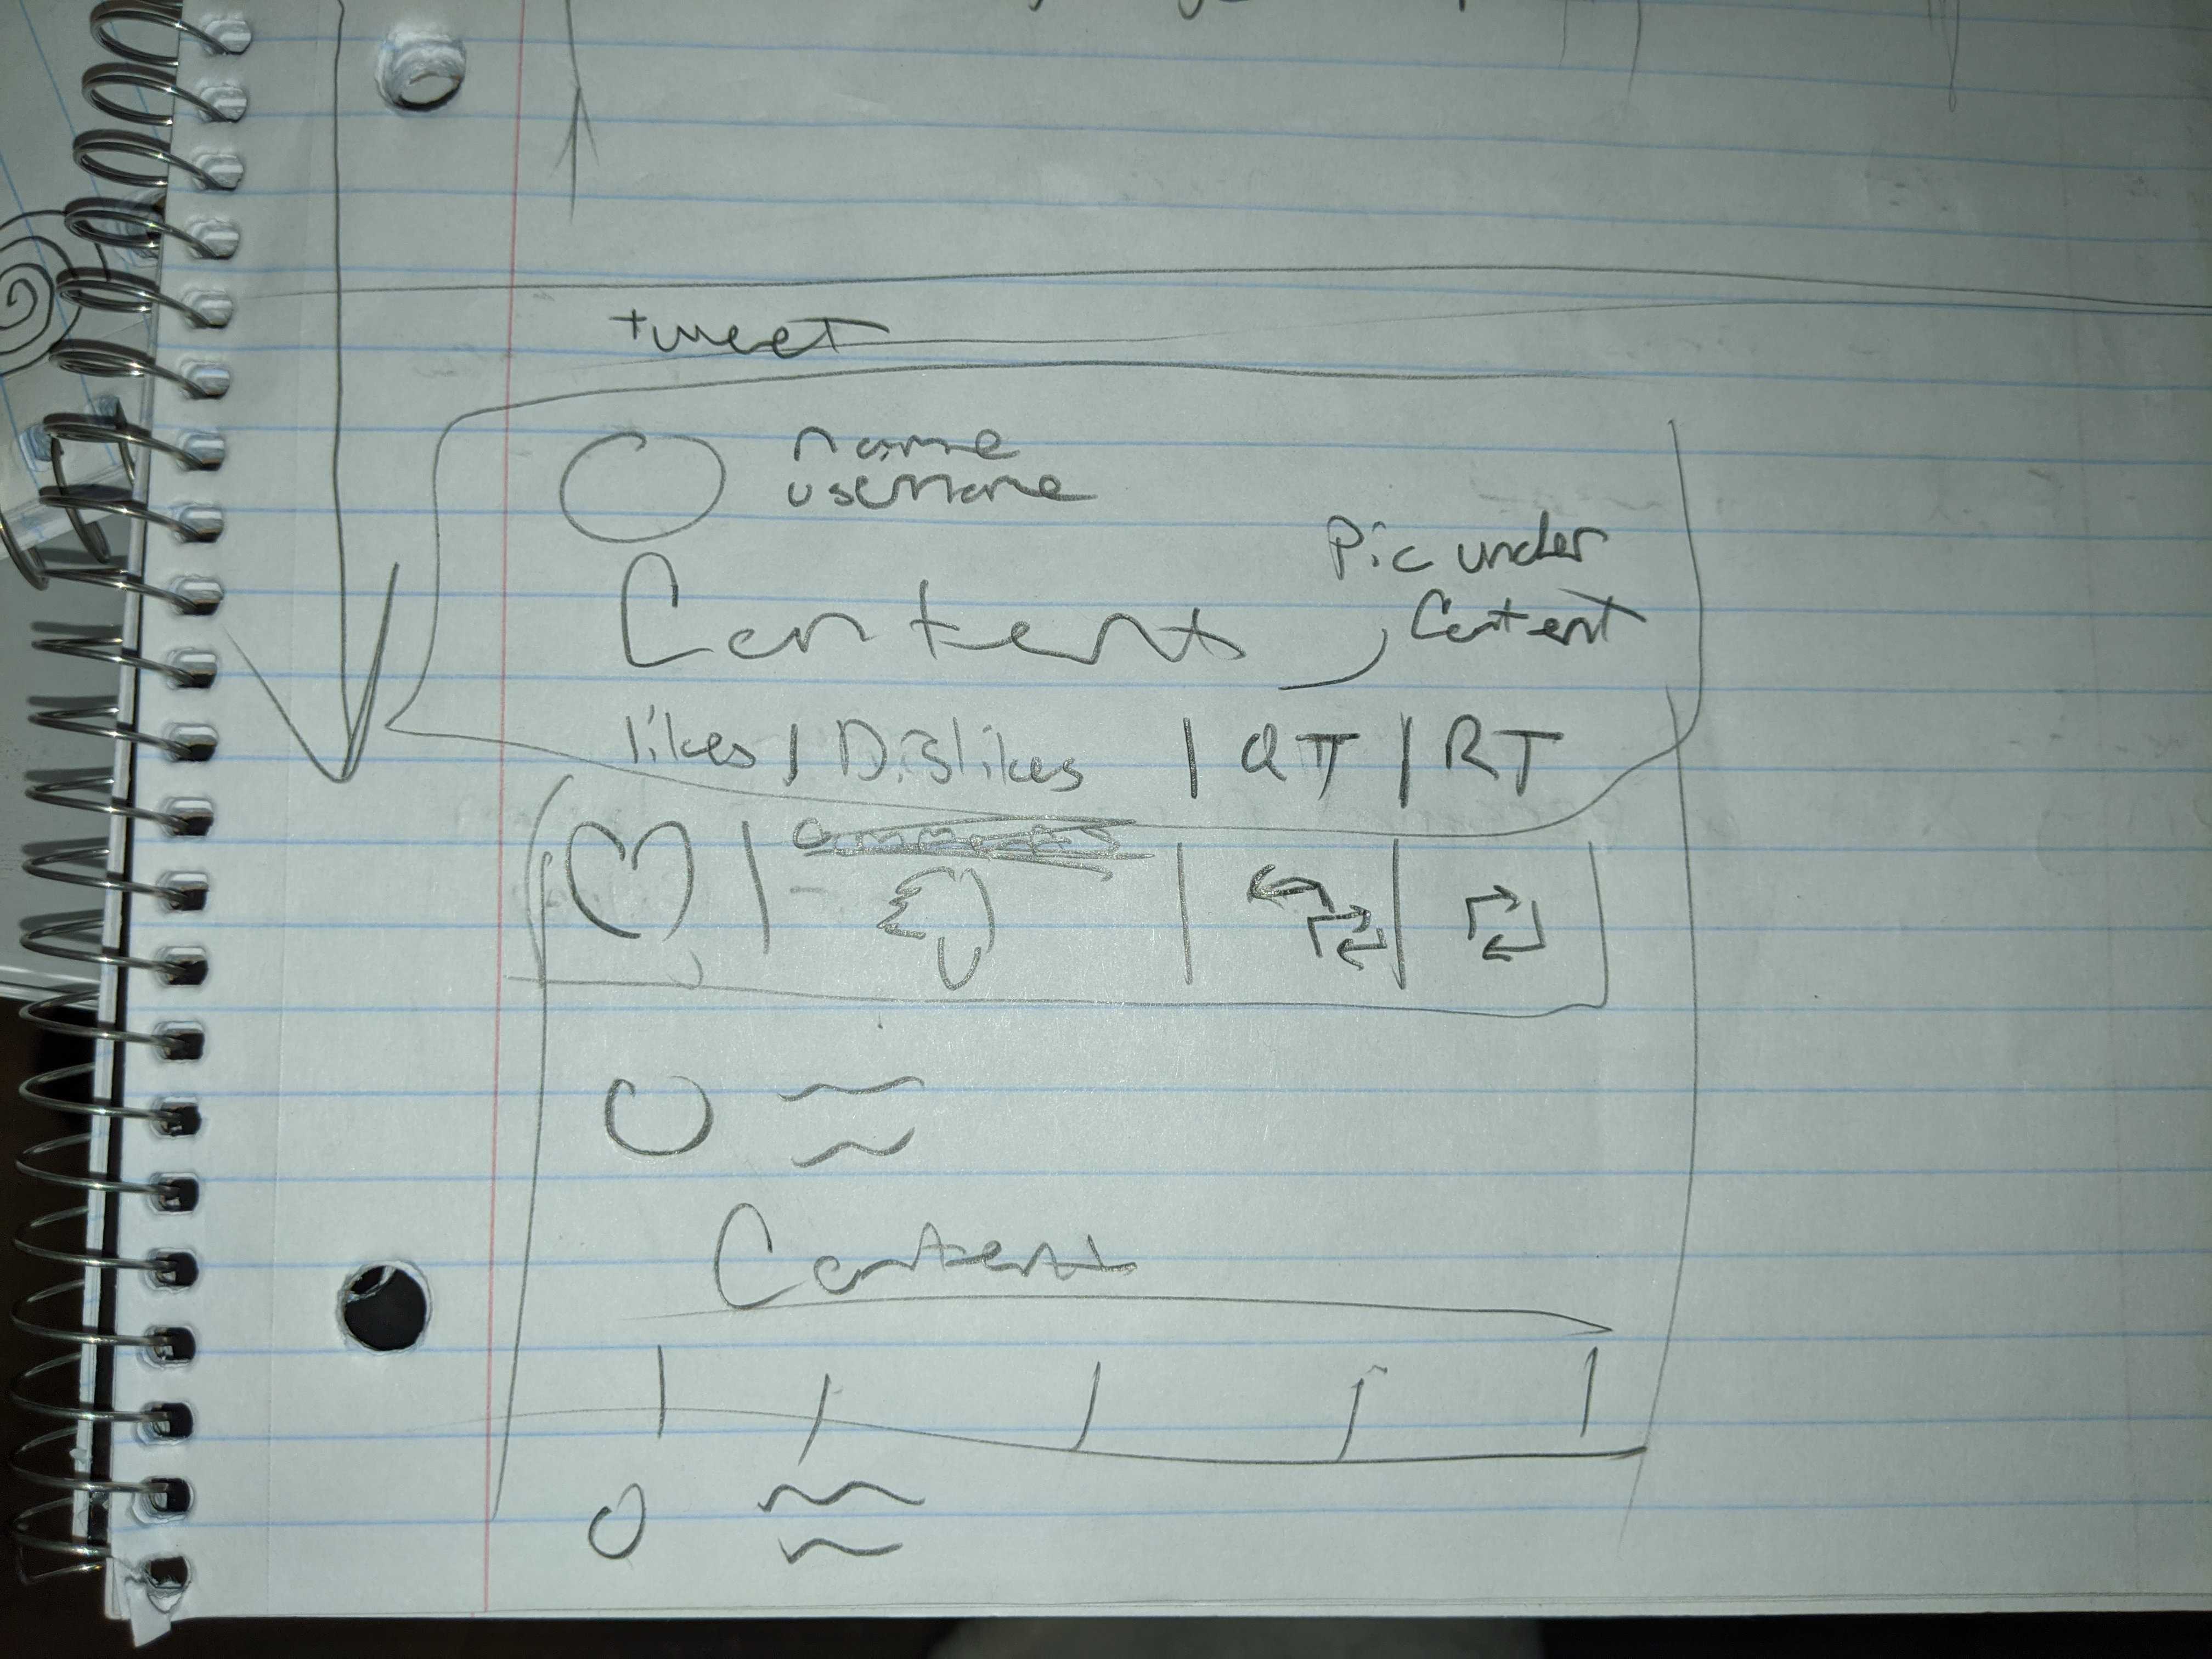 tweet
name
username
Pic under
Content
Content
likes | Dislikes | QT | RT
Content